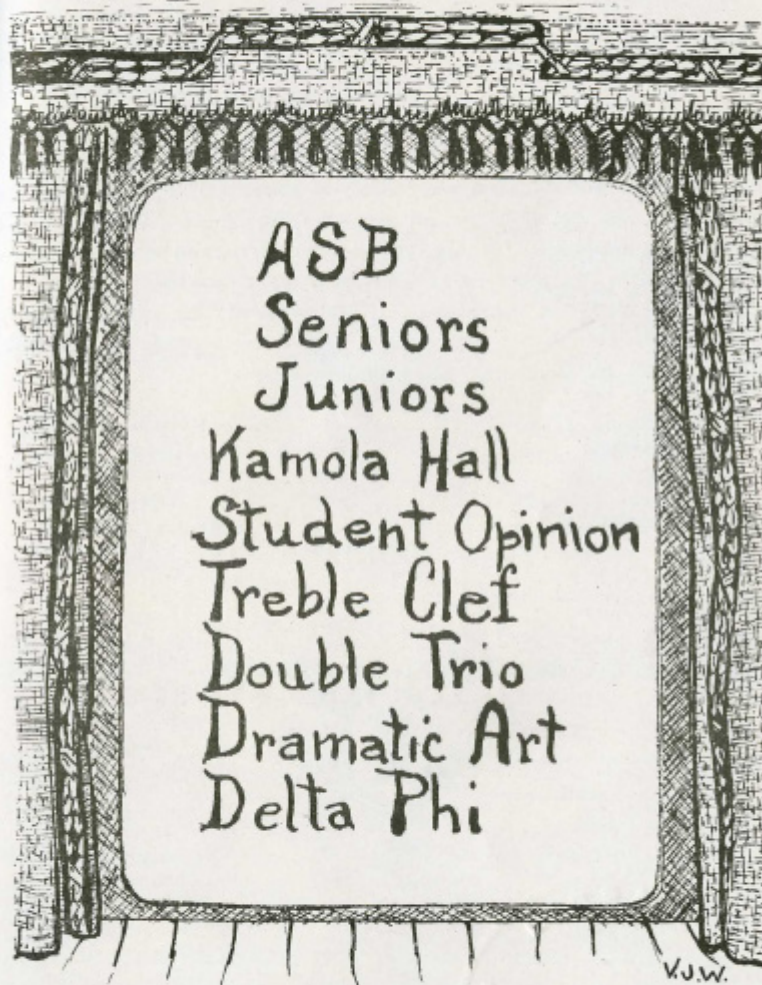 ASB
Seniors
Juniors
Kamola Hall
Student Opinion
Treble Clef
Double Trio
Dramatic Art
Delta Phi
V.J.W.